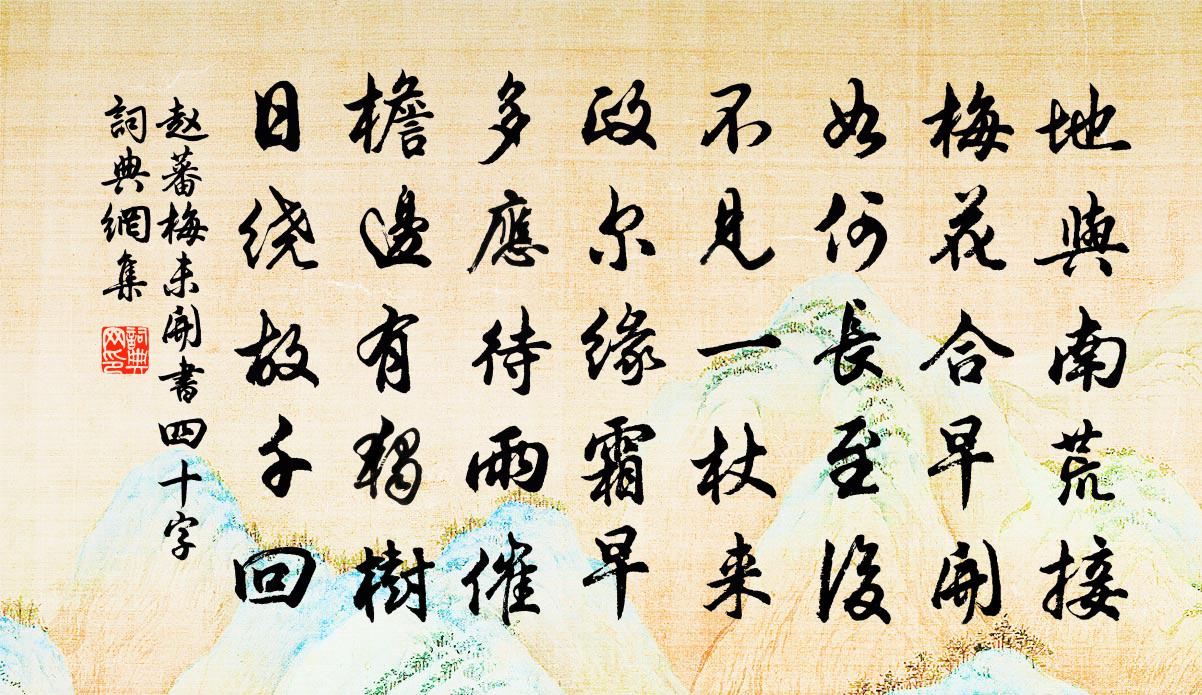 地與南荒接
梅花合早開
如何長至後
不見一枝来
政尔緣霜早
多應待雨催
檐邊有獨樹
日绕故千回
赵蕃梅未開書四十字
詞典網集
詞典
网印